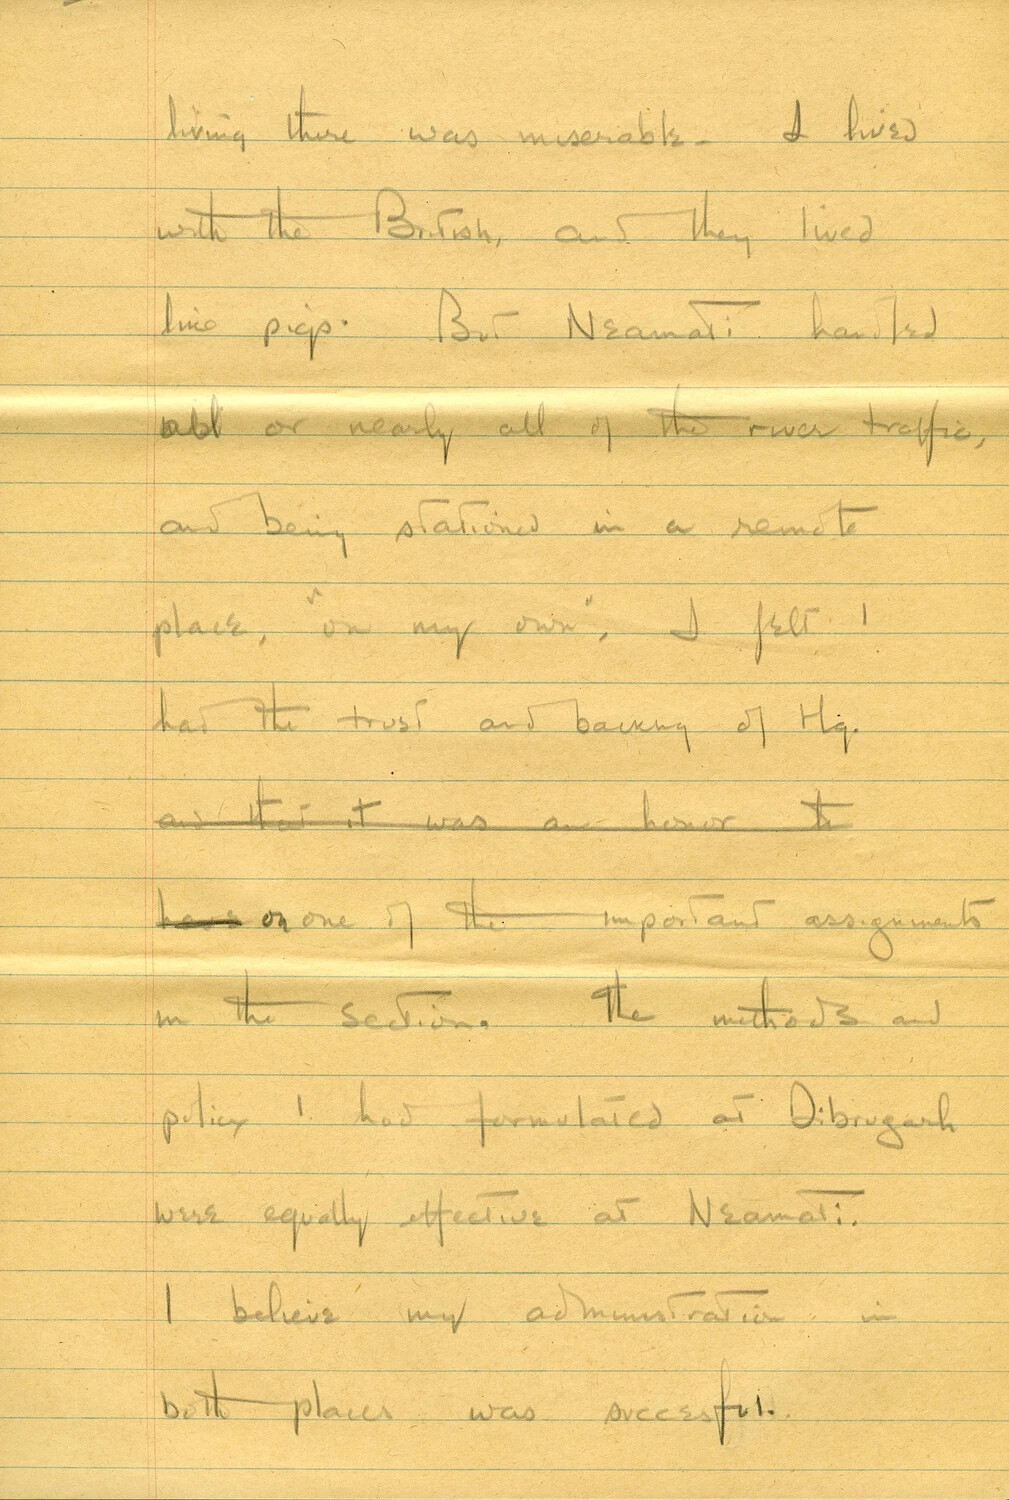 living there was miserable. I lived
with the British, and they lived
like pigs. But Neamati handled
all or nearly all of the river traffic,
and being stationed in a remote
place, "on my own", I felt I
had the trust and backing of Hq.
and that it was an honor to
have on one of the important assignments
in the section. The methods and
policy I had formulated at Dibrugarh
were equally effective at Neamati.
I believe my administration in
both places was succesful.